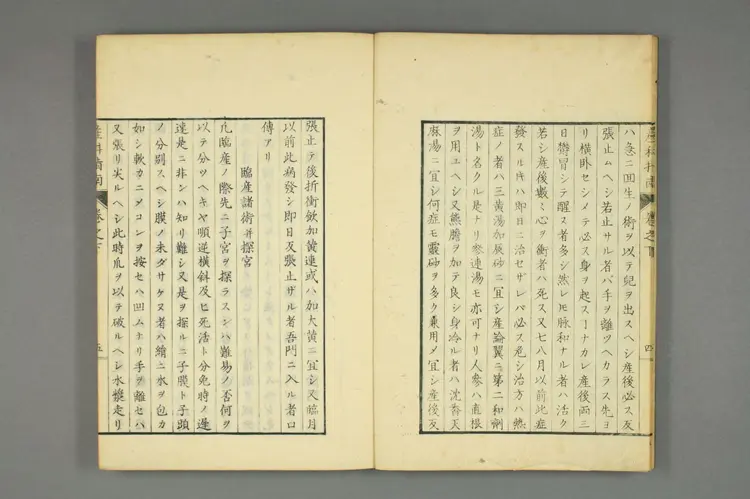 ハ急ニ回生ノ術ヲ以テ兒ヲ出スヘシ産後必ス反
張止ムヘシ若止サル者バ手ヲ離ツヘカラス先ヨ
リ横卧セシメテ必ス身ヲ起スヿナカレ産後両三
日鬱冒シテ醒ス者多シ然レ𪜈脉和ナル者ハ活ク
若シ産後數〻心ヲ衝者ハ死ス又七八月以前此症
發スルキハ即日ニ治セザレバ必ス危シ治方ハ熱
症ノ者ハ三黄湯加辰砂ニ冝シ産論翼ニ第二和劑
湯ト名クル是ナリ参連湯モ亦可ナリ人参ハ直根
ヲ用ユヘシ又熊膽ヲ加テ良シ身冷ル者ハ沈香天
麻湯ニ冝シ何症モ靈砂ヲ多ク兼用メ冝シ産後反
産科指南 巻之下 四
張止テ後折衝飲加黄連或ハ加大黄ニ冝シ又臨月
以前此病發シ即日反張止ザル者吾門ニ入ル者口
傳アリ
臨産諸術并探宮
凢臨産ノ際先ニ子宮ヲ探ラスンハ難易ノ否何ヲ
以テ分ツヘキヤ順逆横斜及ヒ死活ト分免時ノ遅
速是ニ非ンハ知リ難シ又是ヲ探ルニ子膜ト子頭
ノ分別スヘシ膜ノ未ダサケヌ者ハ繪ニ水ヲ包カ
如シ軟カニメコンヲ按セハ凹ムナリ手ヲ離セハ
又張リ尖ルヘシ此時爪ヲ以テ破ルヘシ水漿走リ
産科指南 巻之下 五